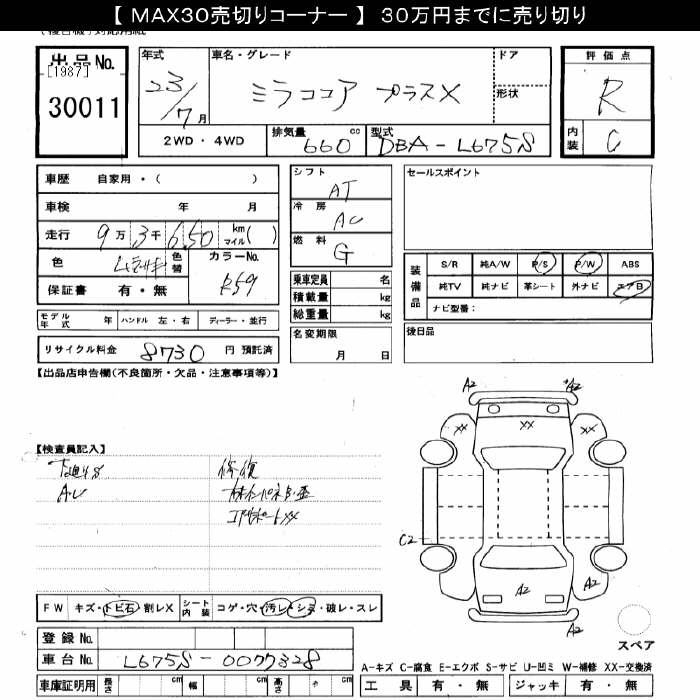 【 MAX30売切りコーナー 】 30万円までに売り切り
出品No.
[1987]
30011
年式
23/7月
車名・グレード
ミラココア プラスX
ドア
形状
2WD・4WD
排気量
660cc
型式
DBA-L675S
評価点
R
内装
C
車歴 自家用・( )
車検 年 月
走行 9万3千650 km マイル( )
色
色替
カラーNo.
R59
保証書 有・無
モデル年式 年 ハンドル 左・右 ディーラー・並行
リサイクル料金 8730 円 預託済
シフト
AT
冷房
AC
燃料
G
乗車定員 名
積載量 kg
総重量 kg
名変期限
月 日
セールスポイント
装備品
S/R 純A/W P/S P/W ABS
純TV 純ナビ 革シート 外ナビ エアB
ナビ型番:
後日品
【出品店申告欄(不良箇所・欠品・注意事項等)】
【検査員記入】
下廻りS
A・U
修復
コアサポートXX
A2
A2
XX
XX
XX
C2
A2
A2
A2
スペア
FW キズ・トビ石・割レX シート内装 コゲ・穴・汚レ・シミ・破レ・スレ
登録No.
車台No. L675S-0077328
車庫証明用 長さ cm 幅 cm 高さ cm
A-キズ C-腐食 E-エクボ S-サビ U-凹ミ W-補修 XX-交換済
工具 有・無 ジャッキ 有・無